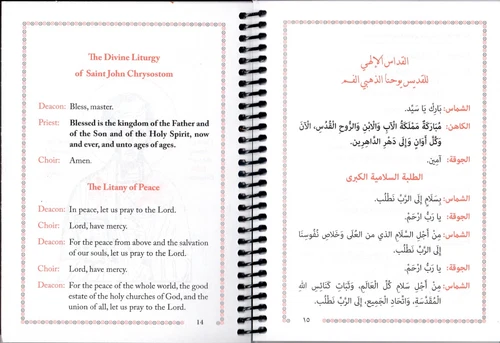 The Divine Liturgy
of Saint John Chrysostom
Deacon: Bless, master.
Priest: Blessed is the kingdom of the Father and
of the Son and of the Holy Spirit, now
and ever, and unto ages of ages.
Choir: Amen.
The Litany of Peace
Deacon: In peace, let us pray to the Lord.
Choir: Lord, have mercy.
Deacon: For the peace from above and the salvation
of our souls, let us pray to the Lord.
Choir: Lord, have mercy.
Deacon: For the peace of the whole world, the good
estate of the holy churches of God, and the
union of all, let us pray to the Lord.
14
القداس الإلهي
للقديس يوحنا الذهبي الفم
الشماس: بَارِك يَا سَيِّد.
الكاهن: مُبَارَكَةٌ مَمْلَكَةُ الآبِ وَالِابْنِ وَالرُّوحِ القُدُسِ، الآنَ
وَكُلَّ أَوَانٍ وَإِلَى دَهْرِ الدَّاهِرِين.
الجوقة: آمِين.
الطلبة السلامية الكبرى
الشماس: بِسَلَامٍ إِلَى الرَّبِّ نَطْلُب.
الجوقة: يا رَبُّ ارْحَمْ.
الشماس: مِنْ أَجْلِ السَّلَامِ الذي من العُلَى وَخَلَاصِ نُفُوسِنَا
إِلَى الرَّبِّ نَطْلُب.
الجوقة: يا رَبُّ ارْحَمْ.
الشماس: مِنْ أَجْلِ سَلَامِ كُلِّ العَالَمِ، وَثَبَاتِ كَنَائِسِ اللهِ
المُقَدَّسَةِ، وَاتِّحَادِ الجَمِيعِ، إِلَى الرَّبِّ نَطْلُب.
١٥